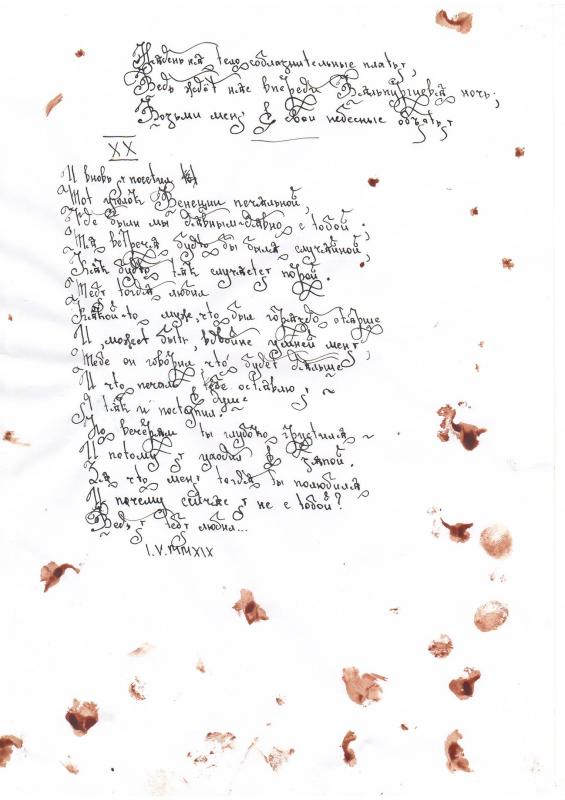 Надень на тело соблазнительные платья,
Ведь ждёт нас впереди Вальпургиева ночь,
Возьми меня в свои небесные объятья
XX
И вновь я посетил
Тот уголок Венеции печальной,
Где были мы давным-давно с тобой.
Та встреча будто бы была случайной,
Как будто так случается порой.
Тебя тогда любил
Какой-то муж, что был гораздо старше
И, может быть вдвойне умней меня,
Тебе он говорил, что будет дальше
И что печаль в душе оставлю я,
Я так и поступил.
Но вечерам ты глубоко грустила
И потому я уходил в запой.
За что меня тогда бы полюбила
И почему сейчас я не с тобой?
Ведь я тебя любил...
I.V.MMXIX